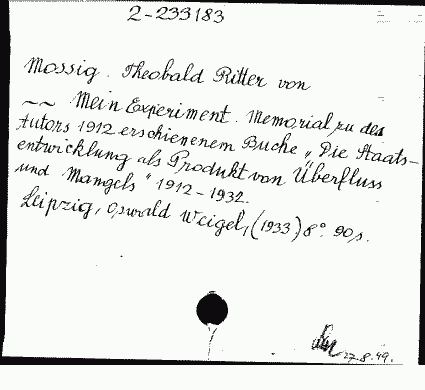 2-233183
Mossig. Theobald Ritter von
~~ Mein Experiment. Memorial zu des
Autors 1912 erschienenem Buche „Die Staats-
entwicklung als Produkt von Überfluss
und Mangels" 1912-1932.
Leipzig, Oswald Weigel, (1933) 8° 90 s.
27.8.49.